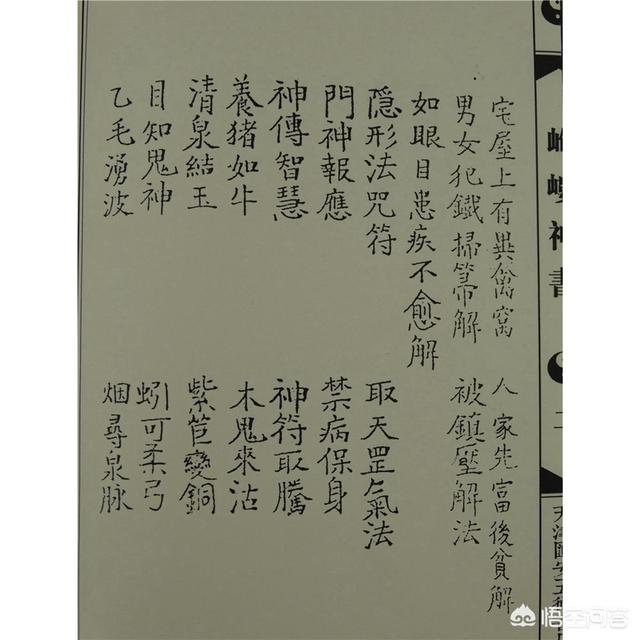 神書
二
宅屋上有異禽窩 人家先富後貧解
男女犯鐵掃箒解 被鎮壓解法
如眼目患疾不愈解
隐形法咒符 取天罡氣法
門神報應 禁病保身
神傳智慧 神符取騰
養猪如牛 木鬼來沽
清泉結玉 紫苣變銅
目知鬼神 蚓可柔弓
乙毛湧波 烟尋泉脉
悟空问答